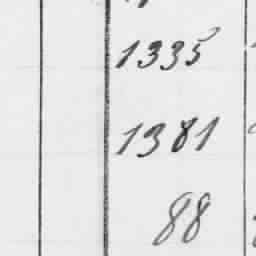 1335
1381
88